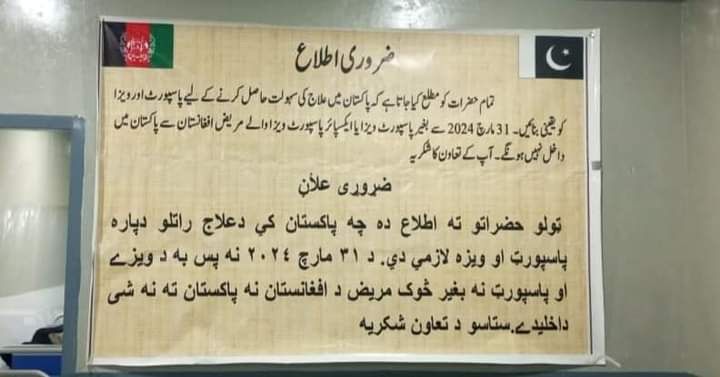 ضروری اطلاع
تمام حضرات کو مطلع کیا جاتا ہے کہ پاکستان میں علاج کی سہولت حاصل کرنے کے لیے پاسپورٹ اور ویزا
کو یقینی بنائیں۔ 31 مارچ 2024 سے بغیر پاسپورٹ ویزا یا ایکسپائر پاسپورٹ ویزا والے مریض افغانستان سے پاکستان میں
داخل نہیں ہونگے۔ آپ کے تعاون کا شکریہ
ضروری علاڼ
ټولو حضراتو ته اطلاع ده چه پاکستان کي دعلاج راتلو دپاره
پاسپورټ او ویزه لازمي دي. د ۳۱ مارچ ۲۰۲۴ نه پس به د ویزے
او پاسپورټ نه بغیر څوک مریض د افغانستان نه پاکستان ته نه شی
داخلیدے.ستاسو د تعاون شکریه